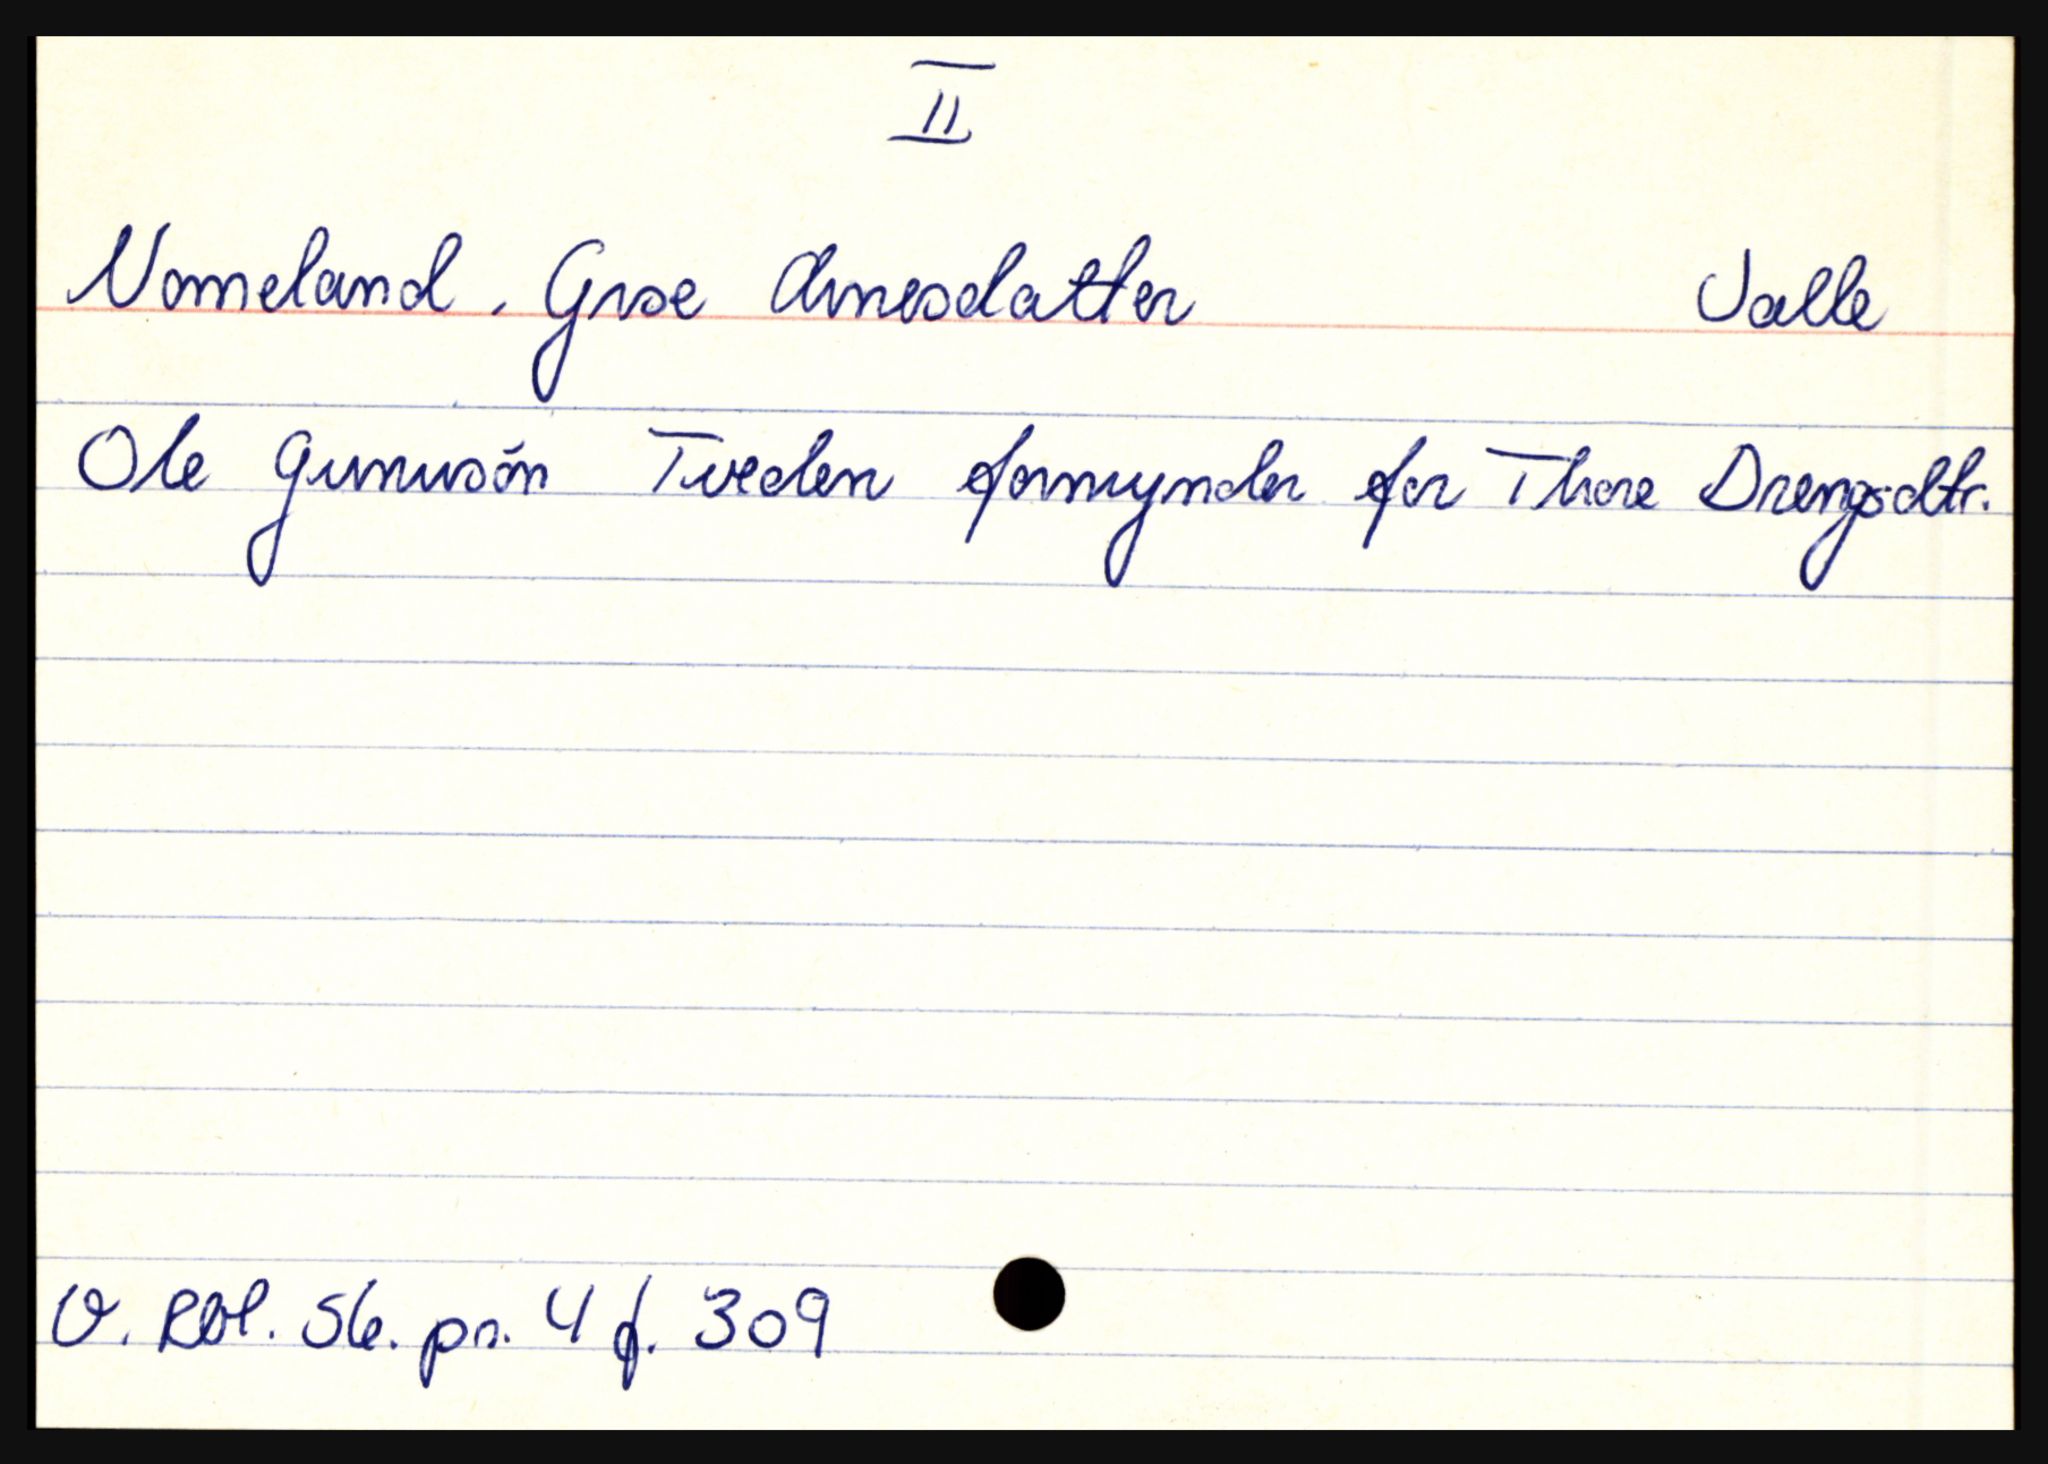 II
Nomeland. Groe Arnesdatter Valle
Ole Gunusón Tveden formynder for Thore Drengsdtr.
V. Rbl. 56. pr. 4 f. 309